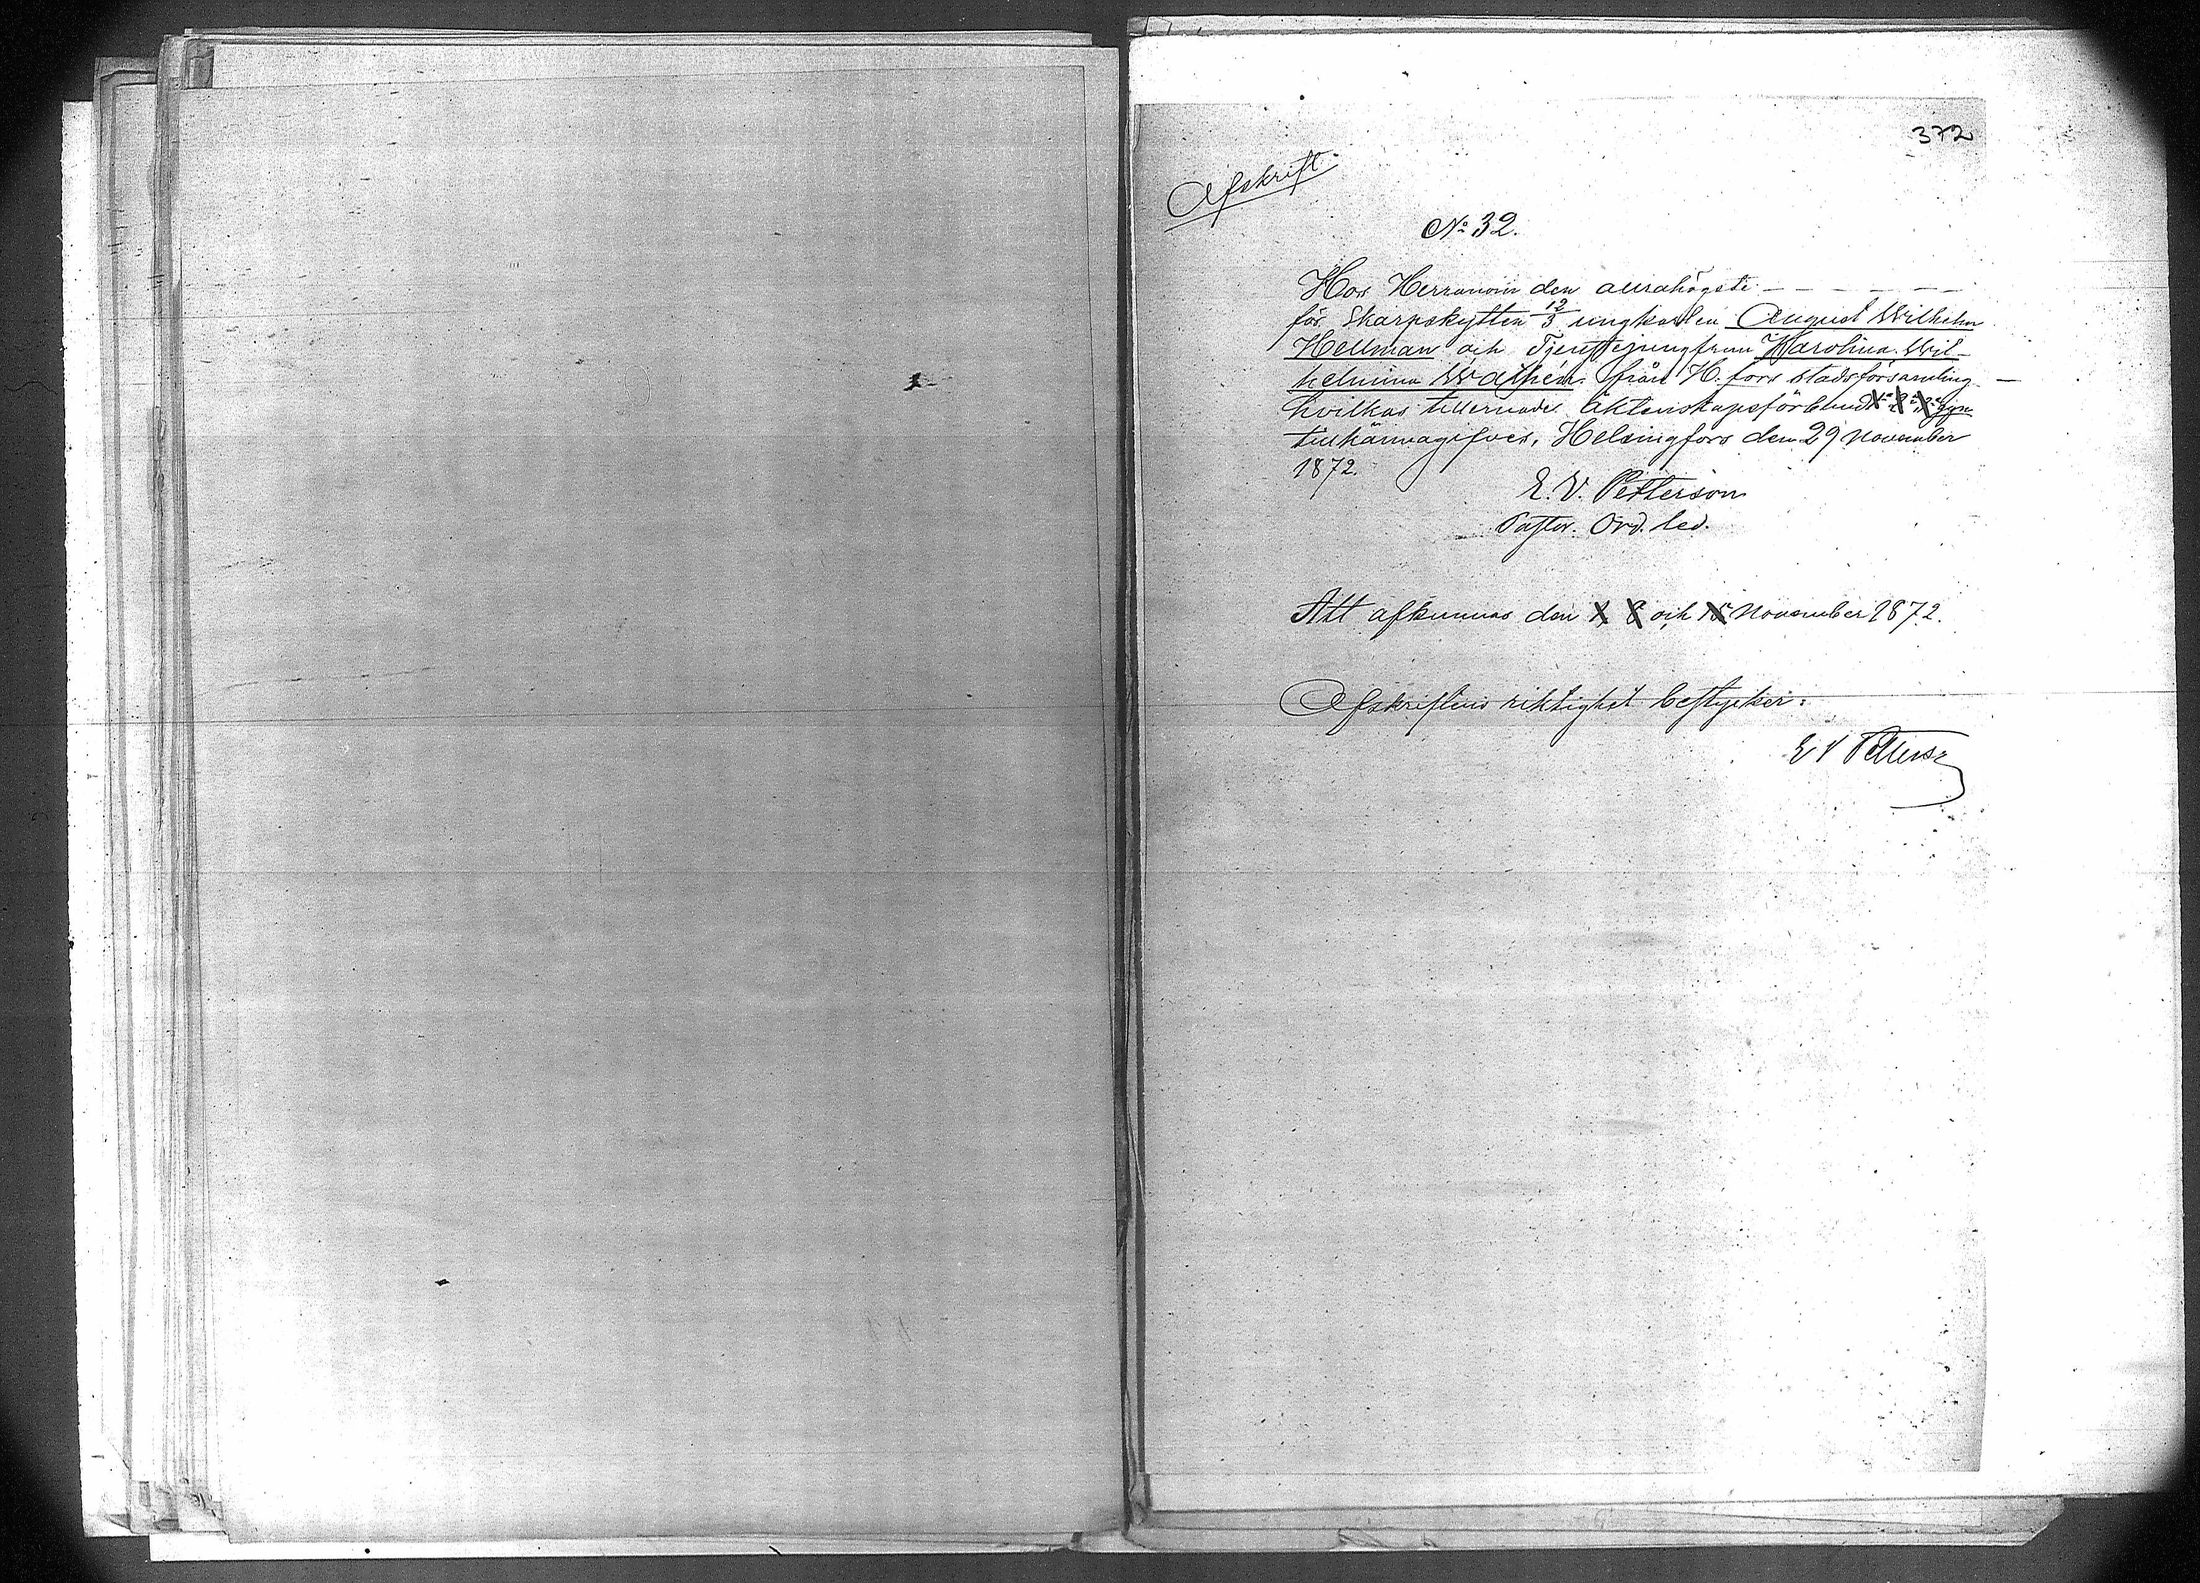 372
Afskrift
No 32.
Hos Herranom den allrahögste
för Skarpskytten 12/3 ungkarlen August Wilhelm
Hellman och Tjenstejungfrun Karolina Wil-
helmina Walhén från H.fors stadsförsamling
hvilkas tillernade äktenskapsförbund
tillkännagifves, Helsingfors den 29 November
1872.
E. V. Petterson
Pastor. Ord. led.
Att afkunnas den 1 8 och 15 November 1872.
Afskriftens riktighet bestyrker:
E V Petterson